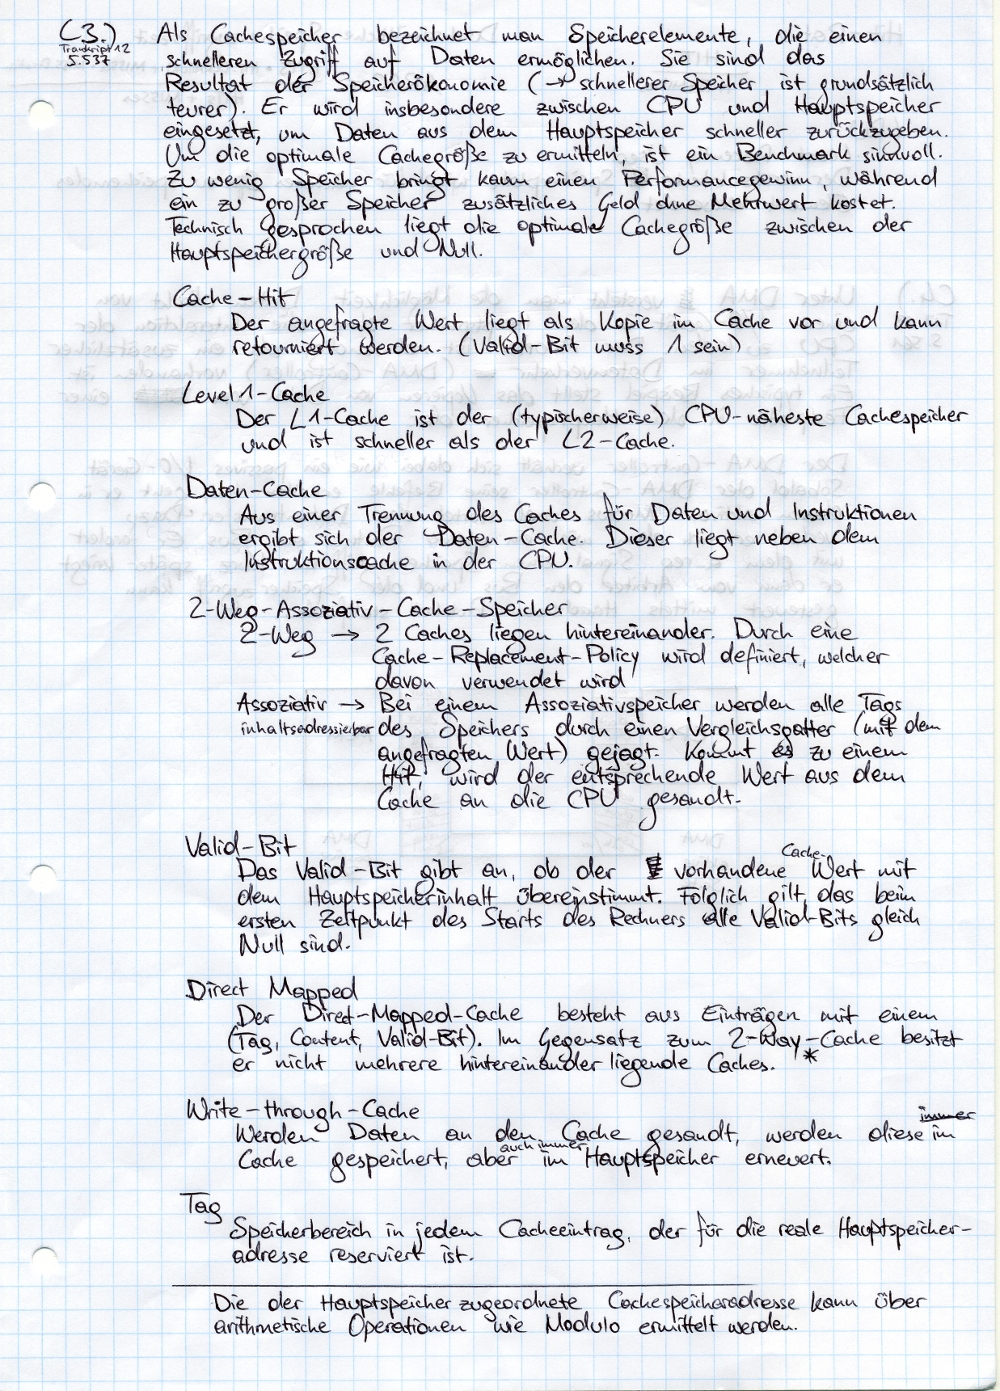 (3.) Als Cachespeicher bezeichnet man Speicherelemente, die einen
Transkript 12
S. 537
schnelleren Zugriff auf Daten ermöglichen. Sie sind das
Resultat der Speicherökonomie (→ schnellerer Speicher ist grundsätzlich
teurer). Er wird insbesondere zwischen CPU und Hauptspeicher
eingesetzt, um Daten aus dem Hauptspeicher schneller zurückzugeben.
Um die optimale Cachegröße zu ermitteln, ist ein Benchmark sinnvoll.
Zu wenig Speicher bringt kaum einen Performancegewinn, während
ein zu großer Speicher zusätzliches Geld ohne Mehrwert kostet.
Technisch gesprochen liegt die optimale Cachegröße zwischen der
Hauptspeichergröße und Null.
Cache-Hit
Der angefragte Wert liegt als Kopie im Cache vor und kann
retourniert werden. (Valid-Bit muss 1 sein)
Level 1-Cache
Der L1-Cache ist der (typischerweise) CPU-näheste Cachespeicher
und ist schneller als der L2-Cache.
Daten-Cache
Aus einer Trennung des Caches für Daten und Instruktionen
ergibt sich der Daten-Cache. Dieser liegt neben dem
Instruktionscache in der CPU.
2-Weg-Assoziativ-Cache-Speicher
2-Weg → 2 Caches liegen hintereinander. Durch eine
Cache-Replacement-Policy wird definiert, welcher
davon verwendet wird
Assoziativ → Bei einem Assoziativspeicher werden alle Tags
inhaltsadressierbar des Speichers durch einen Vergleichsgatter (mit dem
angefragten Wert) gejagt. Kommt es zu einem
Hit, wird der entsprechende Wert aus dem
Cache an die CPU gesandt.
Valid-Bit
Cache-
Das Valid-Bit gibt an, ob der vorhandene Wert mit
dem Hauptspeicherinhalt übereinstimmt. Folglich gilt, das beim
ersten Zeitpunkt des Starts des Rechners alle Valid-Bits gleich
Null sind.
Direct Mapped
Der Direct-Mapped-Cache besteht aus Einträgen mit einem
(Tag, Content, Valid-Bit). Im Gegensatz zum 2-Way-Cache besitzt
er nicht mehrere hintereinander liegende Caches. *
Write-through-Cache
immer
Werden Daten an den Cache gesandt, werden diese im
auch immer
Cache gespeichert, aber im Hauptspeicher erneuert.
Tag
Speicherbereich in jedem Cacheeintrag, der für die reale Hauptspeicher-
adresse reserviert ist.
Die der Hauptspeicher zugeordnete Cachespeicheradresse kann über
arithmetische Operationen wie Modulo ermittelt werden.